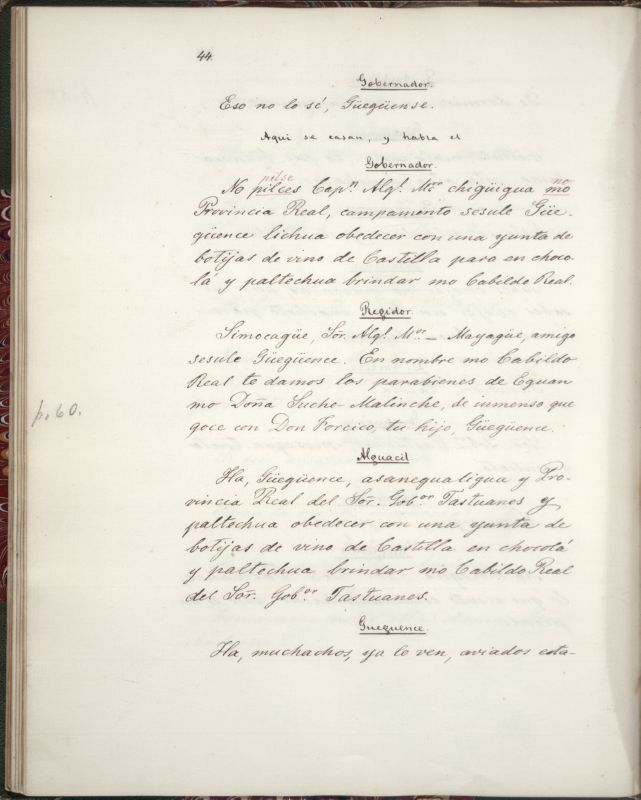 44.
Gobernador.
Eso no lo sé, Güegüense.
Aqui se casan, y habla el
Gobernador.
pilse no
No pilces Capⁿ Algˡ Mᵒʳ chigüigua mo
Provincia Real, campamento sesule Güe-
güence lichua obedecer con una yunta de
botijas de vino de Castilla para en choco-
lá y paltechua brindar mo Cabildo Real.
Regidor.
Simocagüe, Sōr. Algˡ Mᵒʳ — Mayagüe, amigo
sesule Güegüence. En nombre mo Cabildo
Real te damos los parabienes de Equan
mo Doña Suche-Malinche, de inmenso que
p. 60.
goce con Don Forcico, tu hijo, Güegüence.
Alguacil
Ha, Güegüence, asanegualigua y Pro-
vincia Real del Sōr. Gobᵒʳ Tastuanes y
paltechua obedecer con una yunta de
botijas de vino de Castilla en chocolá
y paltechua brindar mo Cabildo Real
del Sōr. Gobᵒʳ Tastuanes.
Gueguence.
Ha, muchachos, ya lo ven, aviados esta-